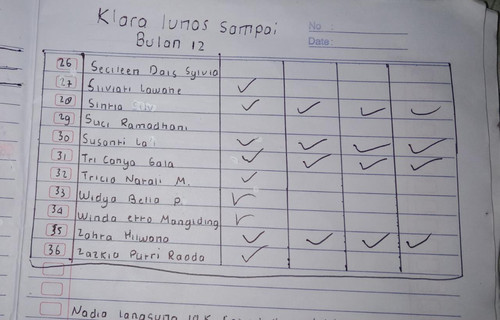 Klara lunas sampai
Bulan 12
No :
Date :
26 Secileen Dais Sylvia
27 Silviati Lawone ✓
28 Sintia ✓ ✓ ✓ ✓
29 Suci Ramadhani
30 Susanti La'i ✓ ✓ ✓ ✓
31 Tri Canya Gala ✓ ✓ ✓ ✓
32 Tricia Narali M. ✓
33 Widya Bella P. ✓
34 Winda erro Mangiding ✓
35 Zahra Hilwana ✓ ✓ ✓ ✓
36 Zazkia Putri Raoda ✓
Nadia langsung